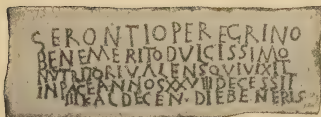 SERONTIO PEREGRINO
BENEMERITO DVLCISSIMO
NVTRITORI VALENS QVI VIXIT
IN PACE ANNOS XXVIII DECESSIT
KAL DECEN · DIE BENERIS